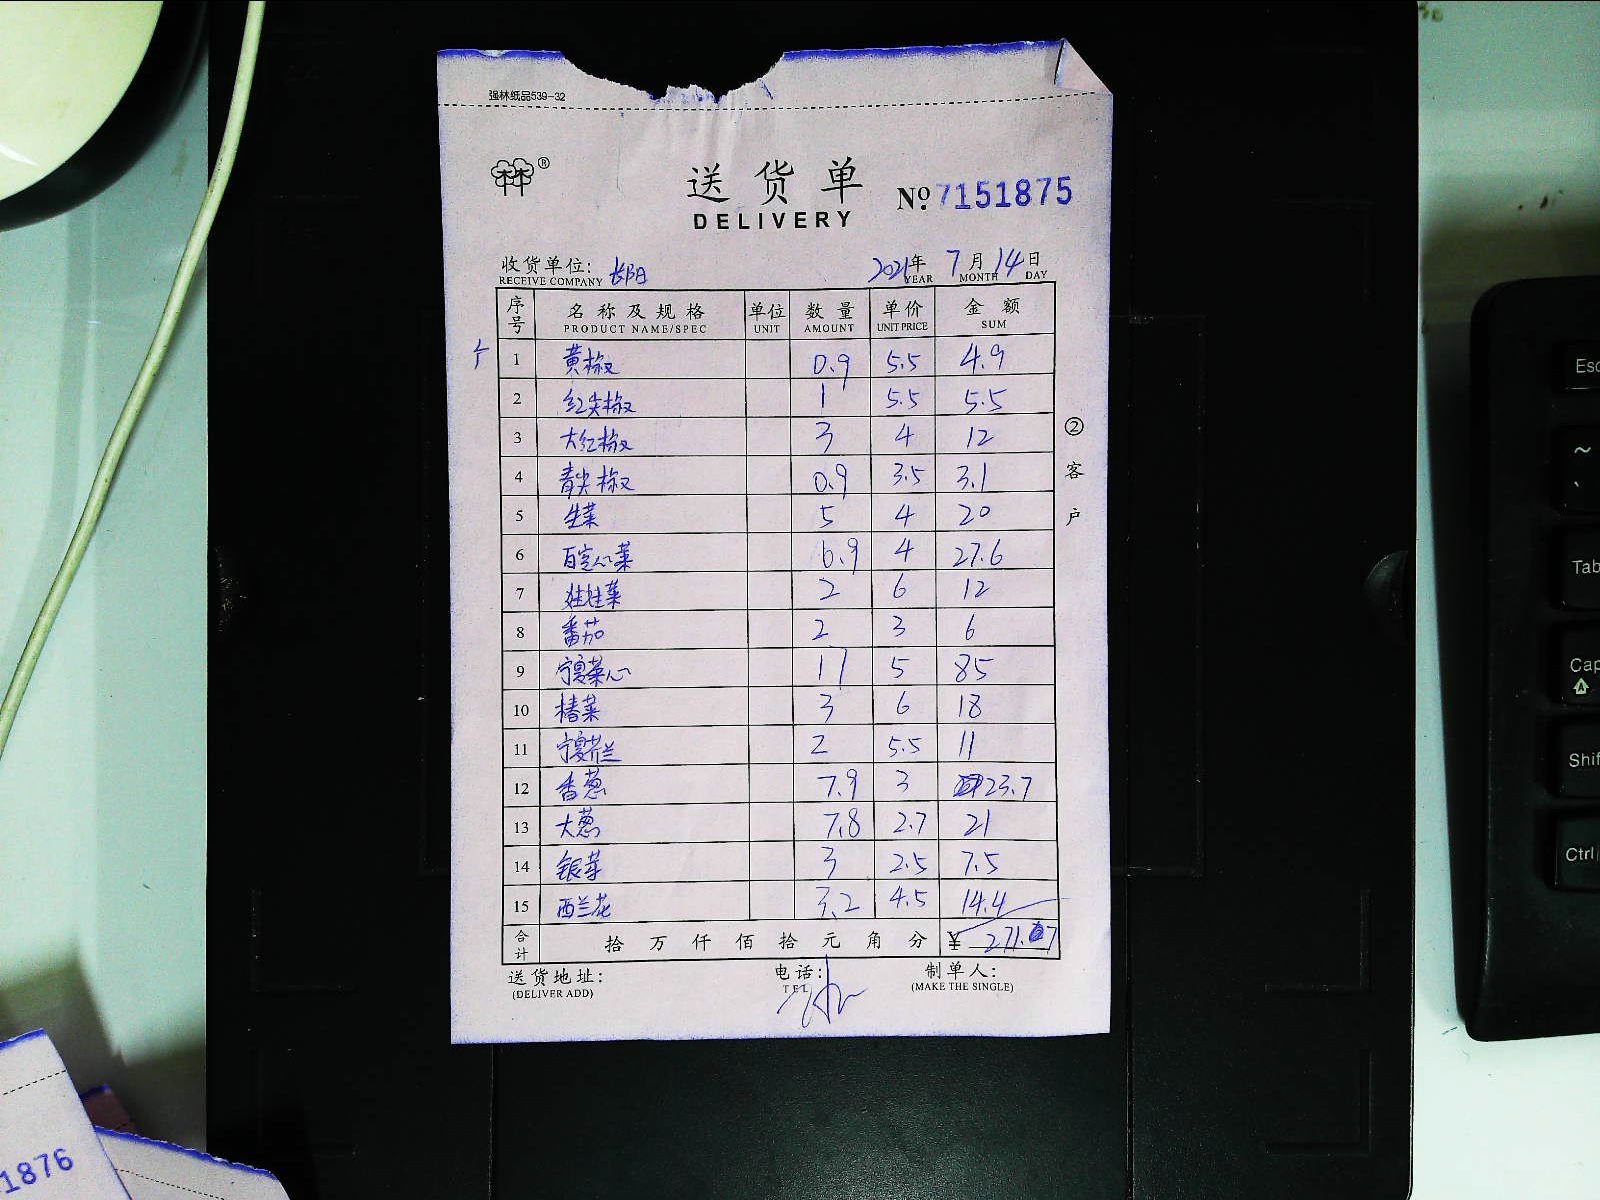 强林纸品539-32
林®
送货单 №7151875
DELIVERY
收货单位: 长阳 2021年 7月 14日
RECEIVE COMPANY YEAR MONTH DAY
序号 名称及规格 单位 数量 单价 金额
PRODUCT NAME/SPEC UNIT AMOUNT UNIT PRICE SUM
1 黄椒 0.9 5.5 4.9
2 红尖椒 1 5.5 5.5
3 大红椒 3 4 12
4 青尖椒 0.9 3.5 3.1
5 生菜 5 4 20
6 百定心菜 6.9 4 27.6
7 娃娃菜 2 6 12
8 番茄 2 3 6
9 宁夏菜心 17 5 85
10 椿菜 3 6 18
11 宁夏芥兰 2 5.5 11
12 香葱 7.9 3 23.7
13 大葱 7.8 2.7 21
14 银芽 3 2.5 7.5
15 西兰花 3.2 4.5 14.4
合计 拾万仟佰拾元角分 ¥ 271.7
②客户
送货地址: 电话: 制单人:
(DELIVER ADD) TEL (MAKE THE SINGLE)
1876
Esc
~
`
Tab
Cap
Shif
Ctrl